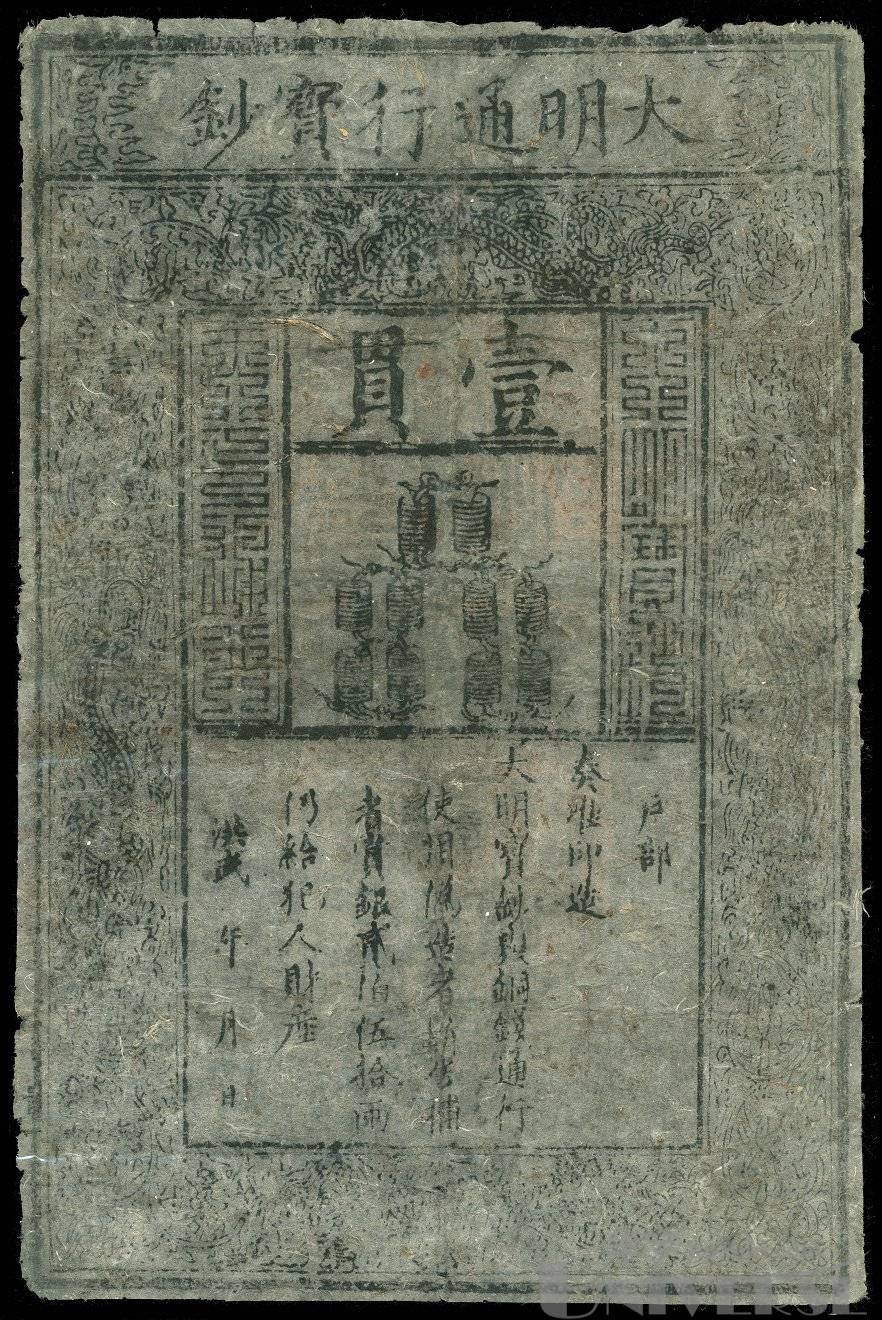 大明通行寶鈔
壹貫
户部
奏准印造
大明寶鈔與銅錢通行
使用偽造者斬告捕
者賞銀貳佰伍拾兩
仍給犯人財產
洪武 年 月 日
UNIVERSE